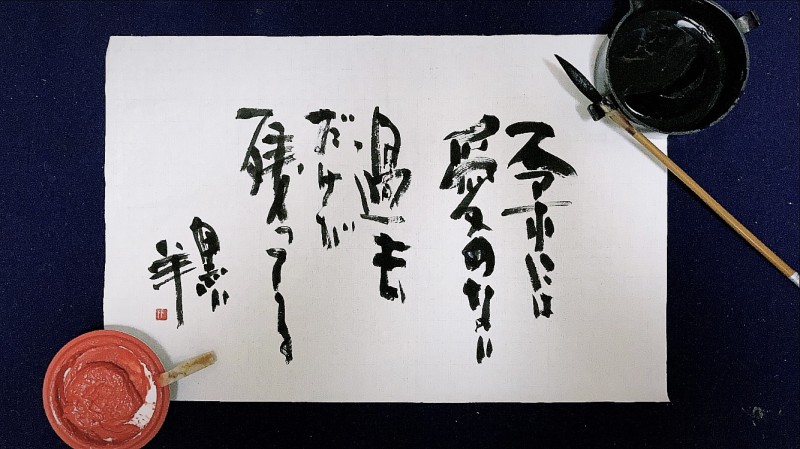 スマホには
愛のない
過去
だけが
残ってる
黒い
羊